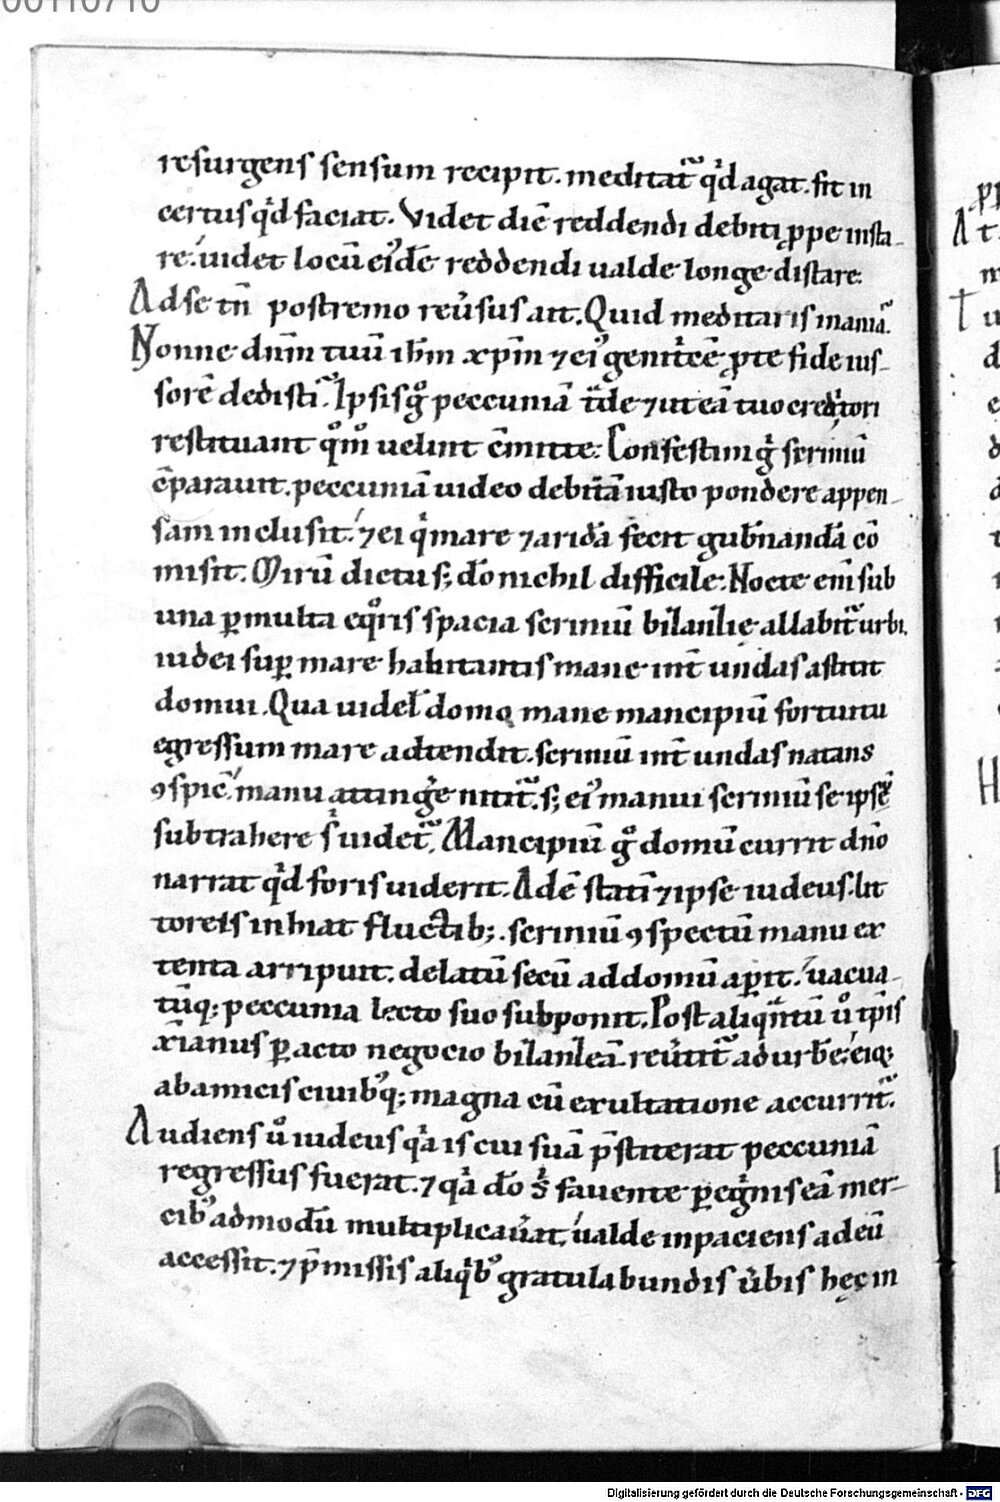 00110710
resurgens sensum recipit. meditat᷑ qͥd agat. fit in
certus qͥd faciat. Videt diē reddendi debiti ꝓpe insta-
re. uidet locū ei᾽dē reddendi ualde longe distare.
Ad se tn̄ postremo reu̓sus ait. Quid meditaris mania.
Nonne dn̄m tuū ih̄m xp̄m ⁊ ei᾽ genitͥcē ꝓ te fide ius-
sorē dedisti. Ipsis gͦ peccuniā tͣde ⁊ ut eā tuo creditori
restituant qͦm̊ uelint cōmitte. Confestim gͥ scriniū
cōparauit. peccuniā uideo debitā iusto pondere appen-
sam inclusit. ⁊ ei qͥ mare ⁊ aridā fecit gub̄nandā cō
misit. Mirū dictu s; dō nichil difficile. Nocte eni̅ sub
una ꝑ multa eqͦris spacia scriniū bilanlię allabit᷑ urbi.
iudei suꝑ mare habitantis mane int̄ undas astitit
domui. Qua uidel̄ domo mane mancipiū fortuitu
egressum mare adtendit. scriniū int̄ undas natans
ꝯspic̄. manu attinge̓ nitit᷑. s; ei᾽ manui scriniū se ipsē
subtrahere sͥ uidet᷑. Mancipiū gͦ domū currit dn̄o
narrat qͥd foris uiderit. Adē stati̅ ⁊ ipse iudeus. lit
toreis inhiat fluctib;. scriniū ꝯspectū manu ex
tenta arripuit. delatū secū ad domū aꝑit. uacua-
tūq; peccunia lecto suo subponit. Post aliqͣntū uͦ tp̄is
xp̄ianus ꝑacto negocio bilanleā reu̓tit᷑ ad urbē. eiq;
ab amicis ciuib᾽q; magna cū exultatione accurrit᷑.
Audiens uͦ iudeus qͣ is cui suā p̄stiterat peccuniā
regressus fuerat. ⁊ qͣ dō sͥ fauente ꝑegͥnis eā mer-
cib᾽ admodū multiplicau̓at. ualde inpaciens ad eū
accessit. ⁊ p̄missis aliqͥb᾽ gratulabundis u̓bis hęc in
Digitalisierung gefördert durch die Deutsche Forschungsgemeinschaft - DFG